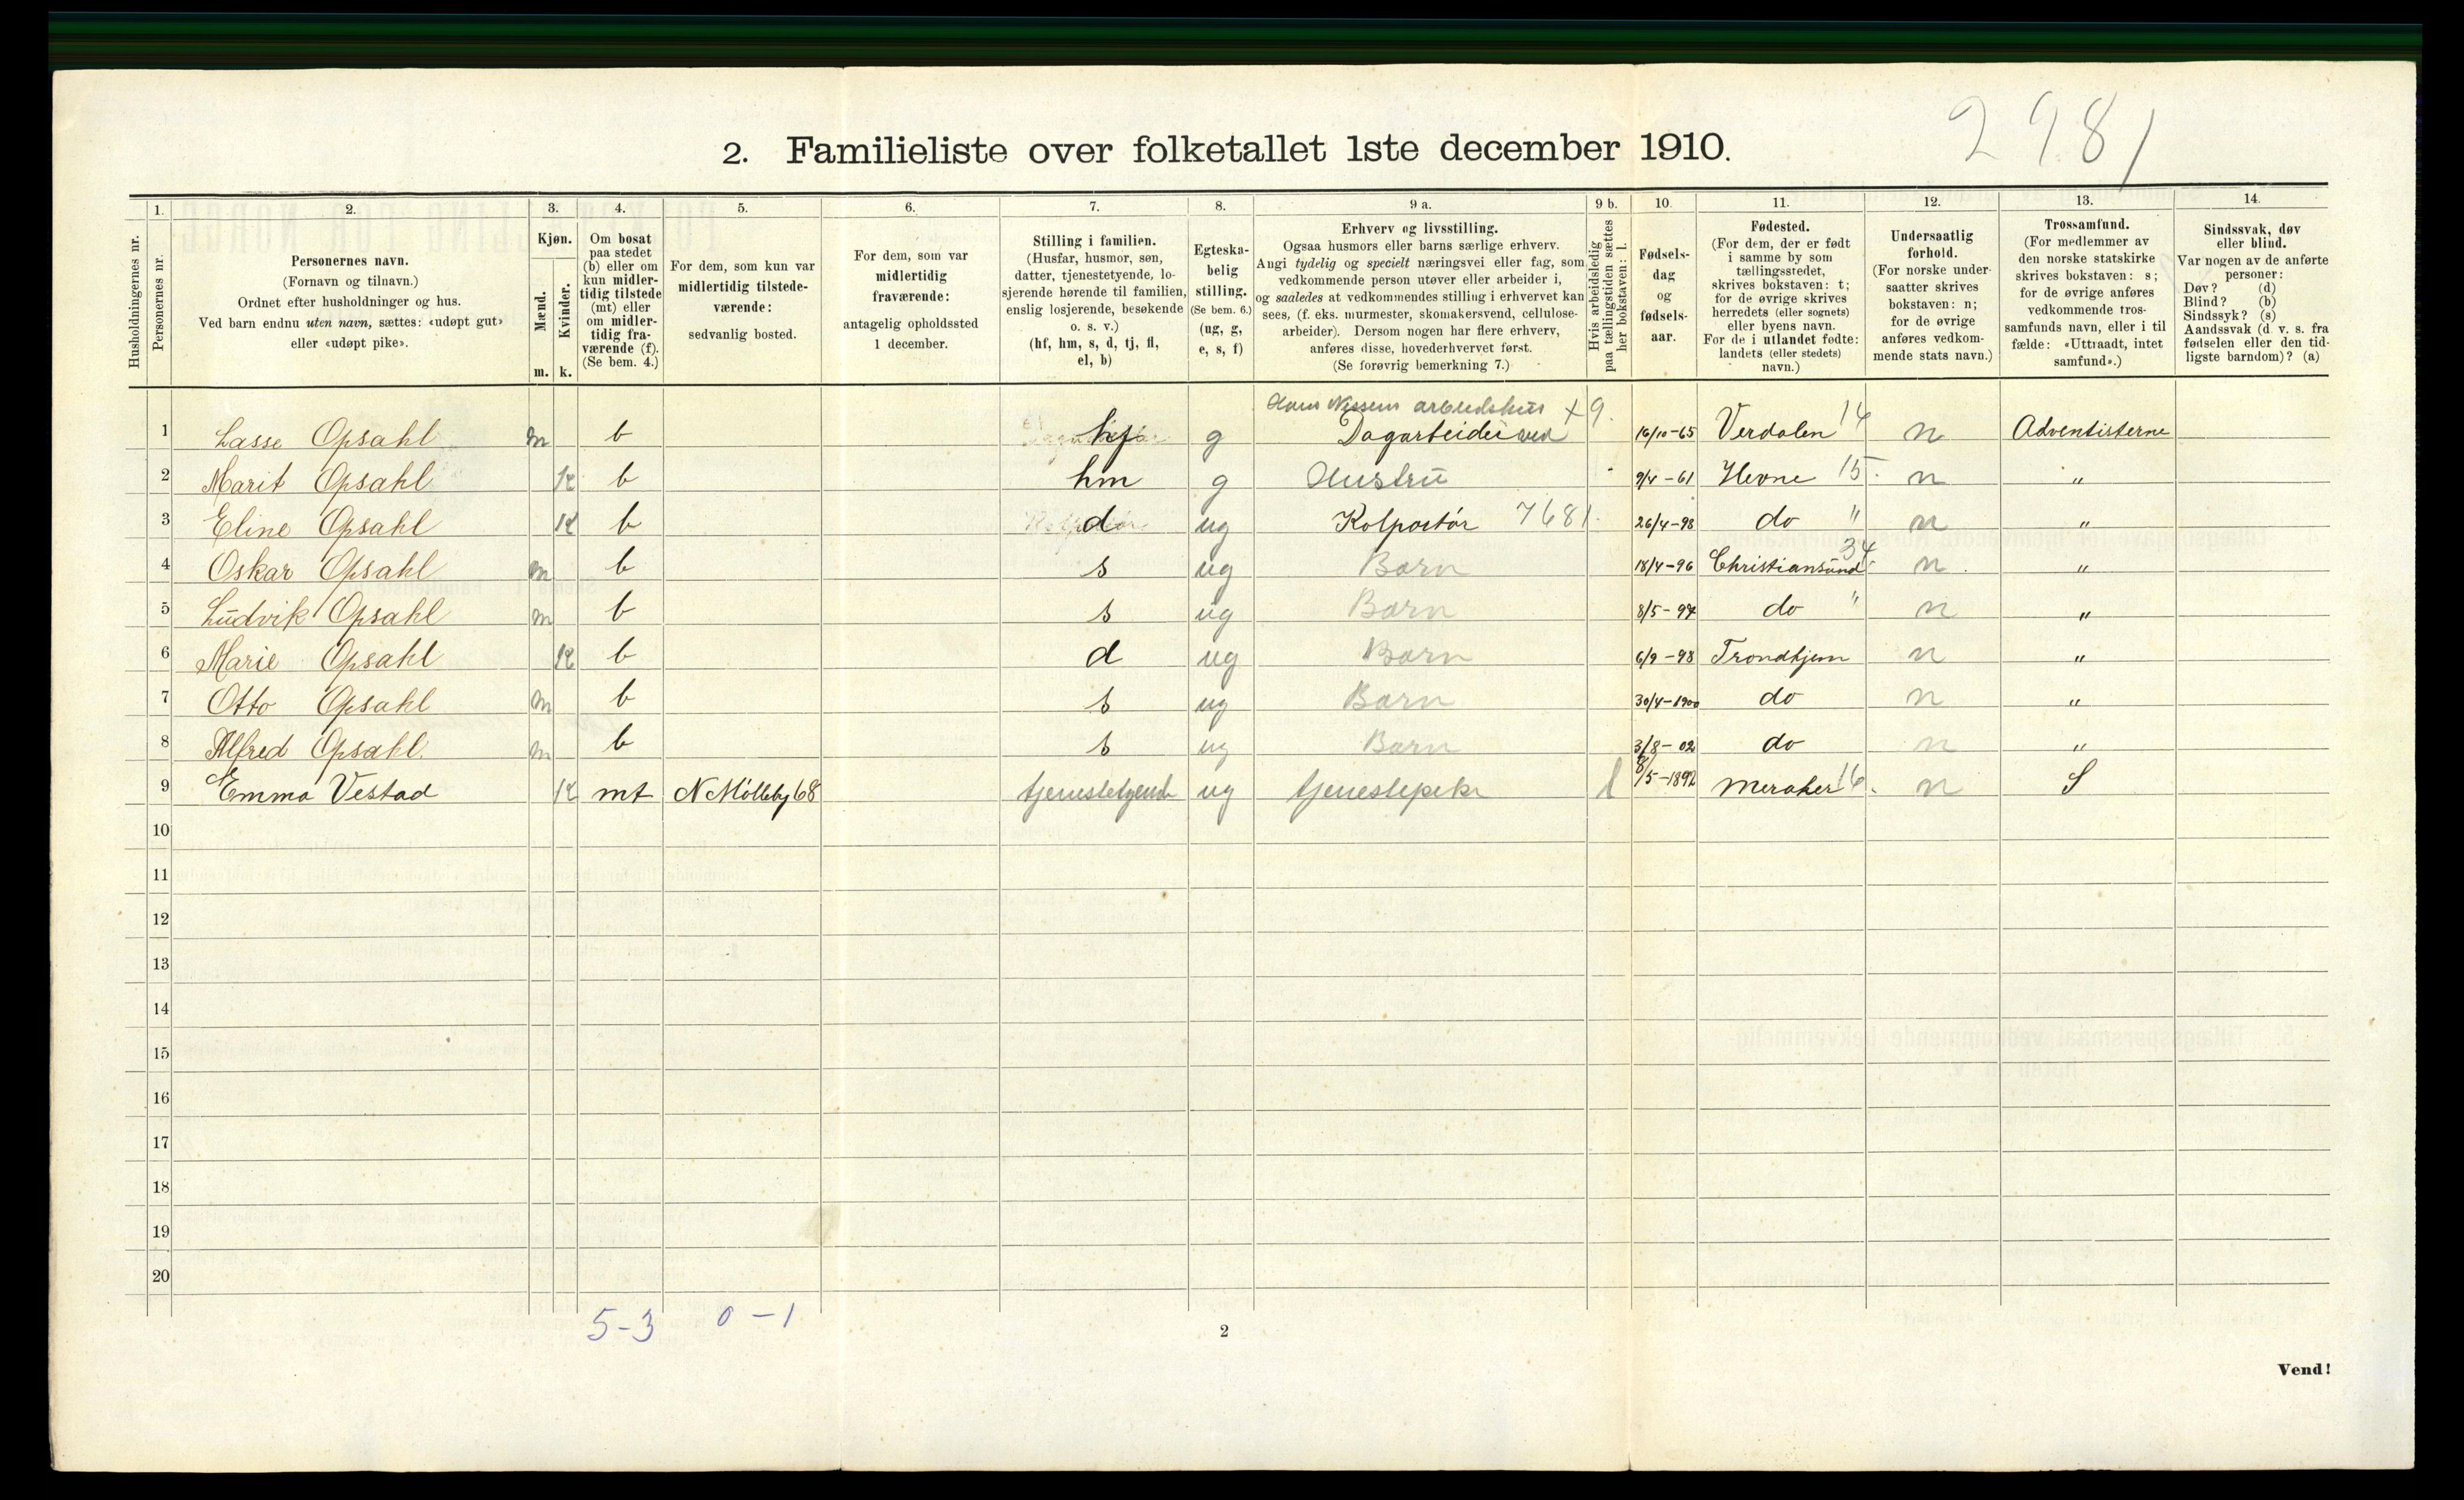 2981
2. Familieliste over folketallet 1ste december 1910.
Husholdningernes nr.
1. Personernes nr.
2. Personernes navn.
(Fornavn og tilnavn.)
Ordnet efter husholdninger og hus.
Ved barn endnu uten navn, sættes: «udøpt gut»
eller «udøpt pike».
3. Kjøn.
Mænd. m.
Kvinder. k.
4. Om bosat
paa stedet
(b) eller om
kun midler-
tidig tilstede
(mt) eller
om midler-
tidig fra-
værende (f).
(Se bem. 4.)
5. For dem, som kun var
midlertidig tilstede-
værende:
sedvanlig bosted.
6. For dem, som var
midlertidig
fraværende:
antagelig opholdssted
1 december.
7. Stilling i familien.
(Husfar, husmor, søn,
datter, tjenestetyende, lo-
sjerende hørende til familien,
enslig losjerende, besøkende
o. s. v.)
(hf, hm, s, d, tj, fl,
el, b)
8. Egteska-
belig
stilling.
(Se bem. 6.)
(ug, g,
e, s, f)
9 a. Erhverv og livsstilling.
Ogsaa husmors eller barns særlige erhverv.
Angi tydelig og specielt næringsvei eller fag, som
vedkommende person utøver eller arbeider i,
og saaledes at vedkommendes stilling i erhvervet kan
sees, (f. eks. murmester, skomakersvend, cellulose-
arbeider). Dersom nogen har flere erhverv,
anføres disse, hovederhvervet først.
(Se forøvrig bemerkning 7.)
9 b. Hvis arbeidsledig
paa tællingstiden sættes
her bokstaven: l.
10. Fødsels-
dag
og
fødsels-
aar.
11. Fødested.
(For dem, der er født
i samme by som
tællingsstedet,
skrives bokstaven: t;
for de øvrige skrives
herredets (eller sognets)
eller byens navn.
For de i utlandet fødte:
landets (eller stedets)
navn.)
12. Undersaatlig
forhold.
(For norske under-
saatter skrives
bokstaven: n;
for de øvrige
anføres vedkom-
mende stats navn.)
13. Trossamfund.
(For medlemmer av
den norske statskirke
skrives bokstaven: s;
for de øvrige anføres
vedkommende tros-
samfunds navn, eller i til
fælde: «Uttraadt, intet
samfund».)
14. Sindssvak, døv
eller blind.
Var nogen av de anførte
personer:
Døv? (d)
Blind? (b)
Sindssyk? (s)
Aandssvak (d. v. s. fra
fødselen eller den tid-
ligste barndom)? (a)
Hans Nissens arbeidshus +9.
1 Lasse Opsahl m b hf g Dagarbeider ved 16/10-65 Verdalen 14 n Adventisterne
2 Marit Opsahl k b hm g Hustru 9/4-61 Hevne 15. n "
3 Eline Opsahl k b d ug Kolportør 7681. 26/4-93 do " n "
4 Oskar Opsahl m b s ug Barn 18/4-96 Christiansund 34 n. "
5 Ludvik Opsahl m b s ug Barn 8/5-97 do " n "
6 Marie Opsahl k b d ug Barn 6/9-98 Trondhjem n "
7 Otto Opsahl m b s ug Barn 30/4-1900 do n "
8 Alfred Opsahl. m b s ug Barn 3/8-02 do n "
9 Emma Vestad k mt N Mølleby 68 tjenestetyende ug tjenestepike l 8/5-1892 Meraker 16. n S
10
11
12
13
14
15
16
17
18
19
20
5-3 0-1
2
Vend!